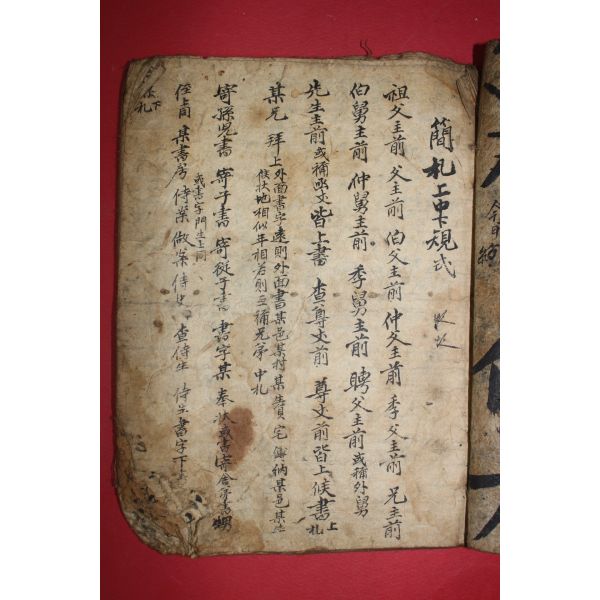 簡札上中下規式
祖父主前 父主前 伯父主前 仲父主前 季父主前 兄主前
伯舅主前 仲舅主前 季舅主前 聘父主前 或稱外舅
先生主前 或稱函丈 皆上書 查尊丈前 尊丈前皆上候書 上札
某兄 拜上 外面書字遠則外面書某邑某村某 宅 傳納某邑某
候狀地相似年相若則互稱兄弟 中札
寄孫兒書 寄子書 寄從子書 書字某 奉狀
或書字門生上同
侄上同 某書房 侍業 做案 侍 查侍生 侍生書字下
下札